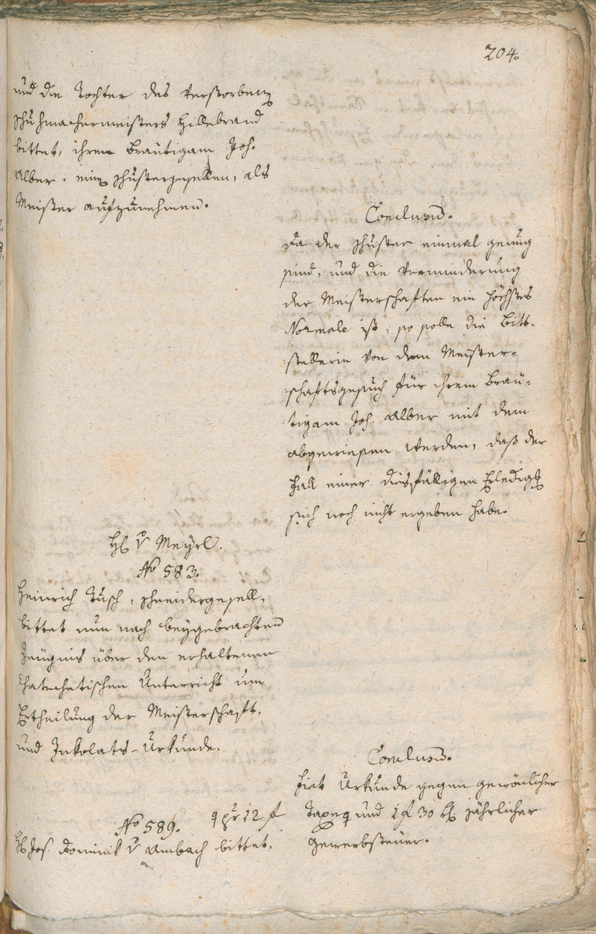 204.
und die Tochter des verstorbenen
Schuhmachermeisters Hillebrand
bittet, ihren Bräutigam Joh.
Alber, einen Schustergesellen, als
Meister aufzunehmen.
Conclusum.
Da der Schuster einmal genug
sind, und die Verminderung
der Meisterschaften ein höchstes
Normale ist, so solle die Bitt-
stellerin von dem Meister-
schaftsgesuch für ihren Bräu-
tigam Joh. Alber mit dem
abgewiesen werden, daß der
Fall einer diesfälligen Erledigg
sich noch nicht ergeben habe.
H. v Meyrl.
No 583.
Heinrich Tusch, Schneidergesell,
bittet nun nach beygebrachten
Zeugnis über den erhaltenen
Chatechetischen Unterricht um
Ertheilung der Meisterschaft,
und Inkolats-Urkunde.
Conclusum.
Fiat Urkunde gegen gewönlicher
Taxe und 1 f 30 jährlicher
Gewerbsteuer.
12 f
No 589.
H. Jos. Dominik v Ambach bittet,